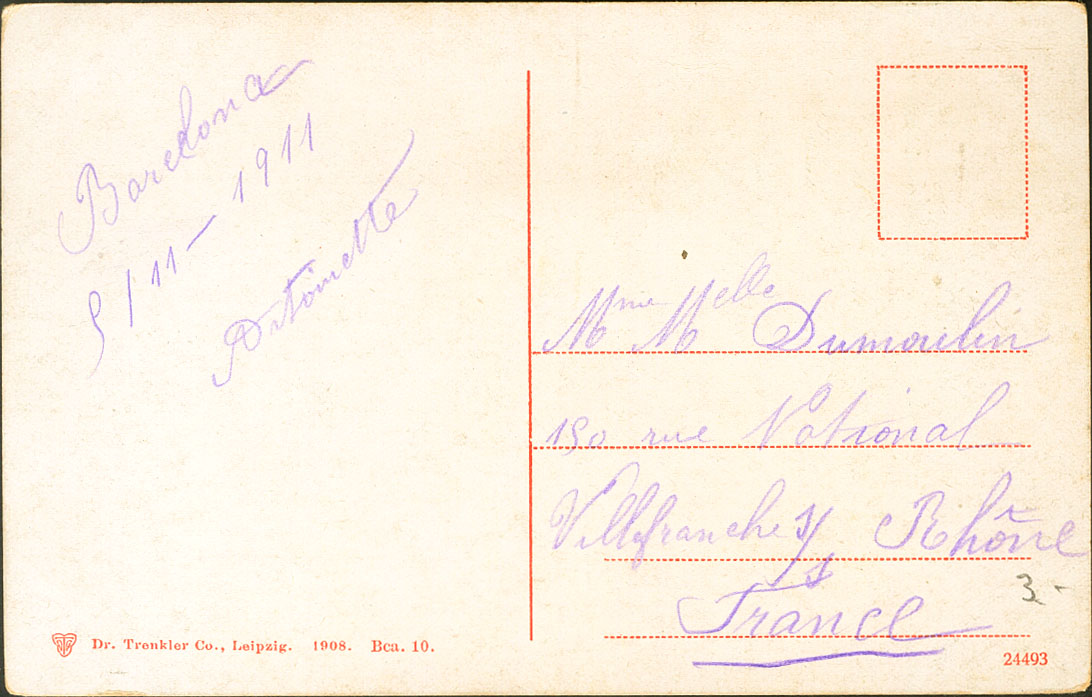 Barcelona
5/11-1911
Antoinette
Mme Melle Dumoulin
150 rue National
Villefranche s/s Rhône
France
3-
Dr. Trenkler Co., Leipzig. 1908. Bca. 10.
24493